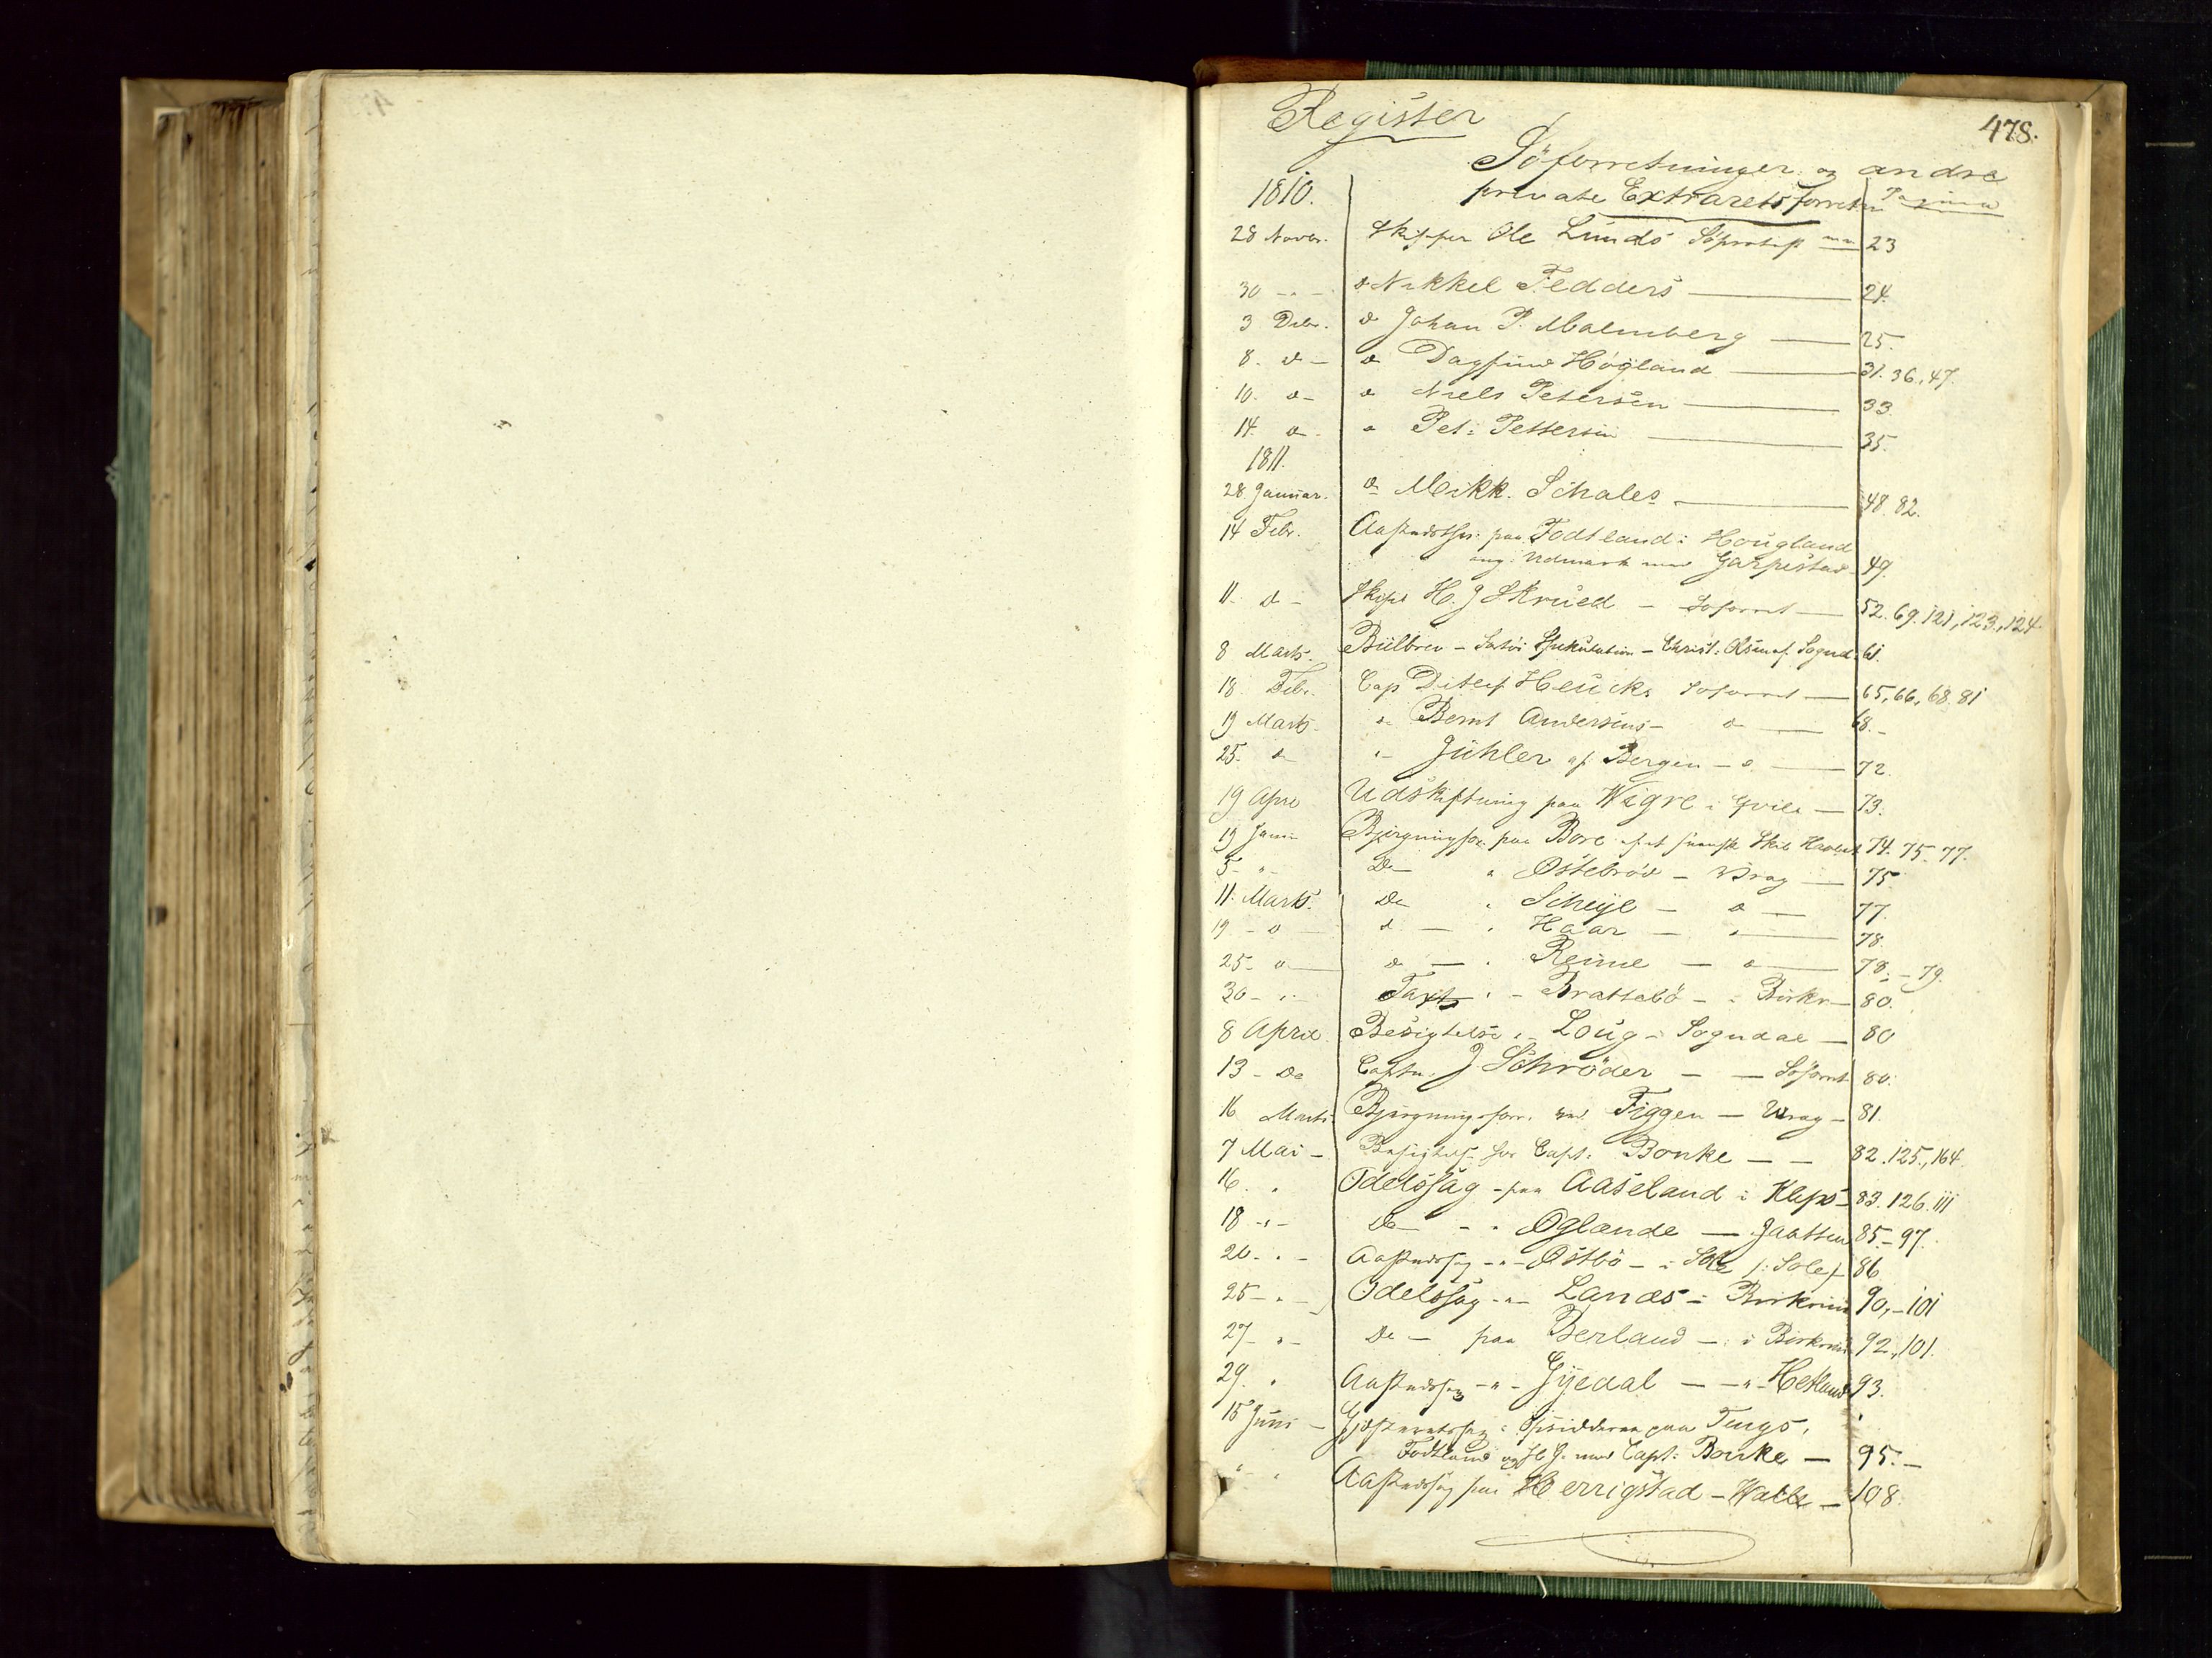 Register
478.
Söforretninger og andre
1810. private Extrarets forretn Pagina
28 Novbr. Skipper Ole Lunds Söprotest 23
30 - " - d Nikkel Fedders — 24.
3 Debr. d Johan P. Malmberg — 25.
8. d - d Dagfind Høgland — 31. 36, 47.
10. d - d Niels Petersen — 33.
14. d - Pet: Pettersen — 35.
1811.
28 Januar. d Mikk. Schales — 48. 82.
14 Febr. Aastedsforr: paa Todtland: Hougland
ang: Udmark med Garpestad 49.
11. d - Skipr H. J Skrued — Söforret — 52. 69. 121, 123, 124.
8 Marts. Biilbrev - - Christ: Sognd. 61.
18. Febr. Cap Ditlef Heucks Söforret — 65, 66, 68. 81
19 Marts. d Bernt Andersens - d — 68. -
25. d " Jühler af Bergen - d. — 72.
19 Apre Udskiftning paa Wigre i — 73.
19 Bjergningsfor paa Bore af et svensk Skib 74. 75. 77.
5 - " - Do " Østebrød - Vrag — 75
11. Marts. Do " Scheije - d — 77.
19 - d d — " Haar — " — 78.
25 - d — d — " Reime — d — 78. - 79.
30 - " - Taxt " - Brattebö - i Birkr — 80.
8 April Besigtelse " - Loug - Sogndal — 80
13 - Do Captn. J Schröder — — Söforret 80.
16 Marts. Bjergningsforr. ved Figgen — Vrag - 81.
7 Mai - Besigtels for Capt: Bonke — — 82. 125, 164.
16. " Odelssag - paa Aaseland i Kleps - 83. 126. 111
18 - " - Do - " Oglænde — Jaatten 85. - 97.
20 - " - Aastedssag - " - Østbö - i Sole /: Sole :/ 86
25 - " - Odelssag - " - Landes - i Birkrim 90, - 101
27 - " - Do - paa Berland - i Birkrim 92, 101.
29. " Aastedssag - " - Gyedal — " - Hetland 93.
15 Juni - Gjæsteretssag: paa Tengs,
Todtland og H. J. mod Capt: Bonke — 95. -
" - " Aastedssag paa Herrigstad - Walle — 108.